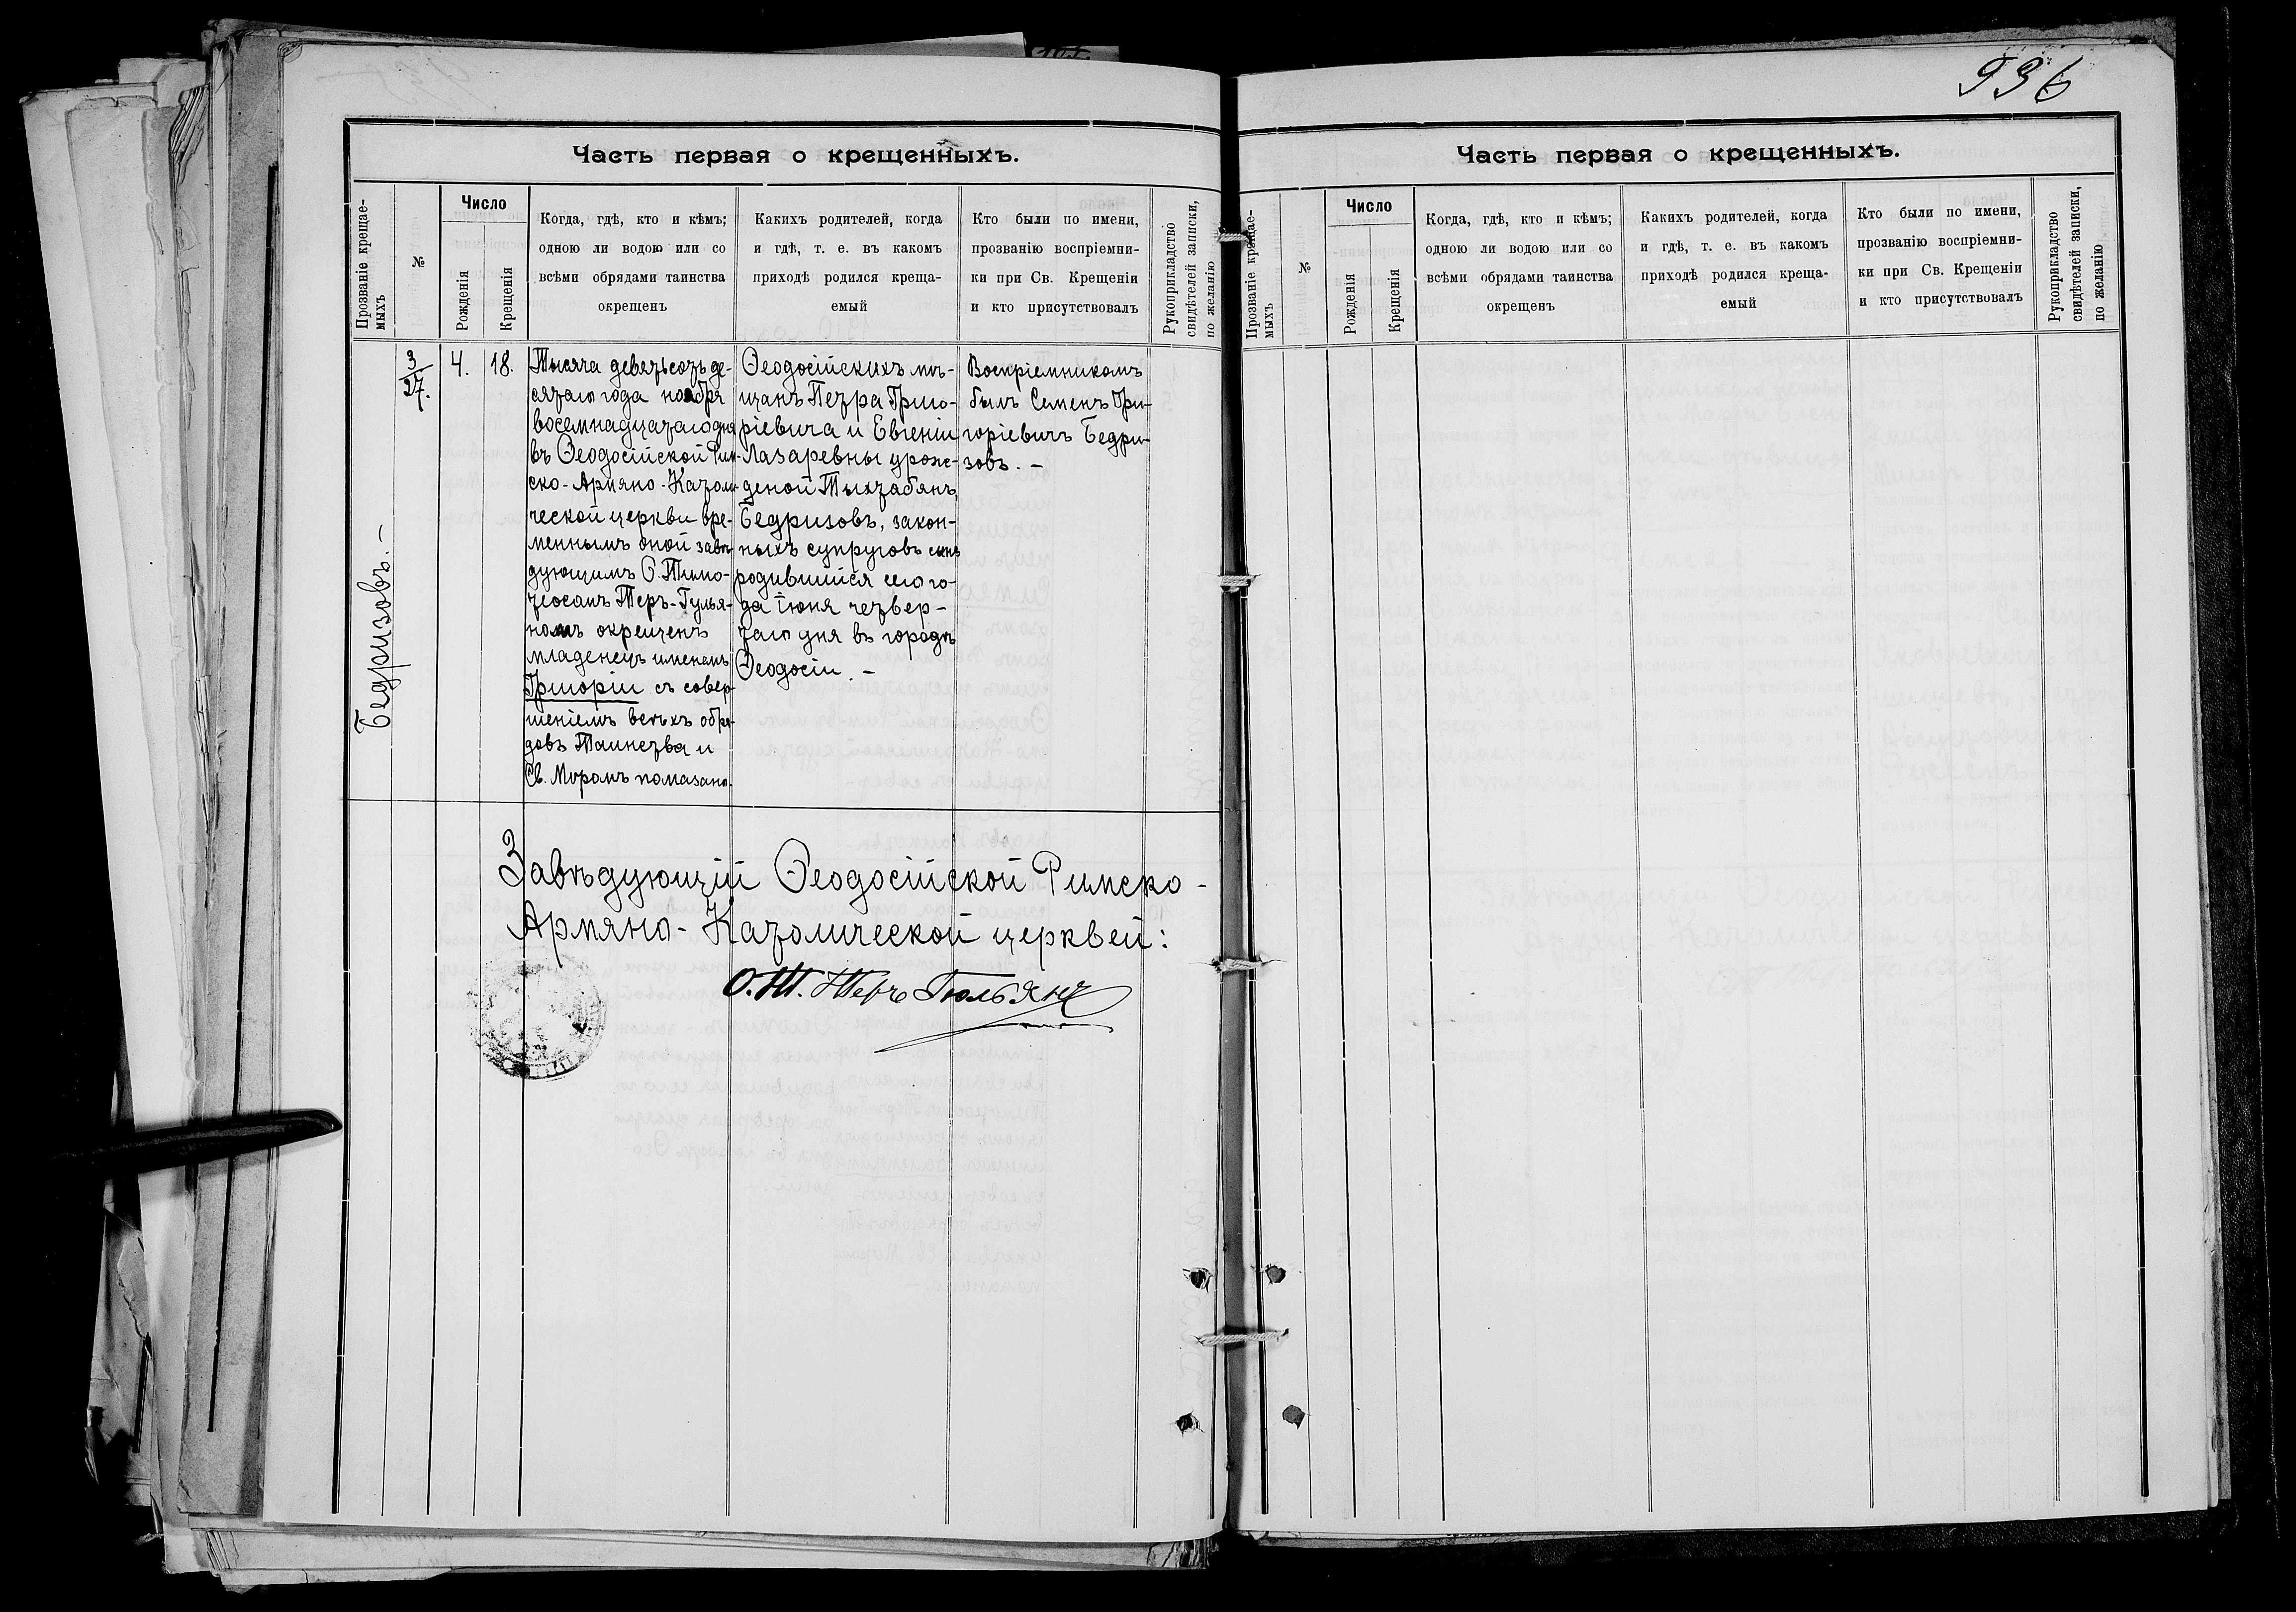 936
Часть первая о крещенныхъ.
Прозваніе крещае-
мыхъ
№
Число
Рожденія
Крещенія
Когда, гдѣ, кто и кѣмъ;
одною ли водою или со
всѣми обрядами таинства
окрещенъ
Какихъ родителей, когда
и гдѣ, т. е. въ какомъ
приходѣ родился креща-
емый
Кто были по имени,
прозванію воспріемни-
ки при Св. Крещеніи
и кто присутствовалъ
Рукоприкладство
свидѣтелей записки,
по желанію
Бедризовъ.-
3/27.
4.
18.
Тысяча девятьсотъ де-
сятаго года ноября
восемнадцатаго дня
въ Ѳеодосійской Рим-
ско-Армяно-Католи-
ческой церкви вре-
меннымъ оной завѣ-
дующимъ О. Тимо-
теосомъ Теръ-Гулья-
номъ окрещенъ
младенецъ именемъ
Григорій съ совер-
шеніемъ всѣхъ обря-
довъ Таинства и
Св. Мѵромъ помазанъ.
Ѳеодосійскихъ мѣ-
щанъ Петра Григо-
ріевича и Евгеніи
Лазаревны урож-
деной Тыхтабянъ,
Бедризовъ, закон-
ныхъ супруговъ сынъ
родившійся сего го-
да Іюня четвер-
таго дня въ городѣ
Ѳеодосіи.-
Воспріемникомъ
былъ Семенъ Гри-
горіевичъ Бедри-
зовъ.-
Завѣдующій Ѳеодосійской Римско-
Армяно-Католической церквей:
О. Т. Теръ Гюльянъ
Часть первая о крещенныхъ.
Прозваніе крещае-
мыхъ
№
Число
Рожденія
Крещенія
Когда, гдѣ, кто и кѣмъ;
одною ли водою или со
всѣми обрядами таинства
окрещенъ
Какихъ родителей, когда
и гдѣ, т. е. въ какомъ
приходѣ родился креща-
емый
Кто были по имени,
прозванію воспріемни-
ки при Св. Крещеніи
и кто присутствовалъ
Рукоприкладство
свидѣтелей записки,
по желанію